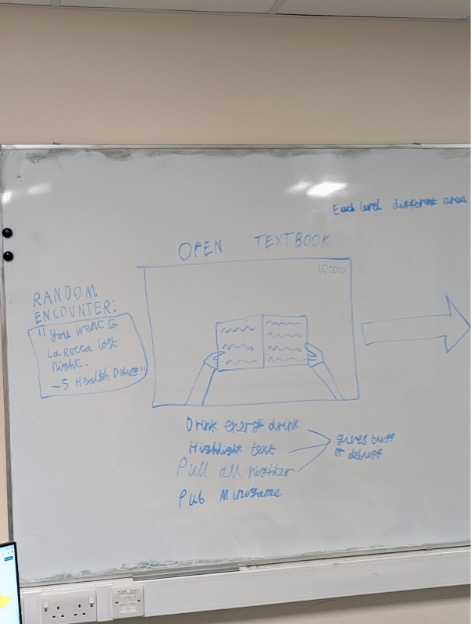 Each level different area
OPEN TEXTBOOK
10:00
RANDOM
ENCOUNTER:
"You went to
La Rocca last
night.
-5 Health Debuff"
Drink energy drink
Highlight text
Pull all nighter
gives buff
or debuff
Pub Minigame